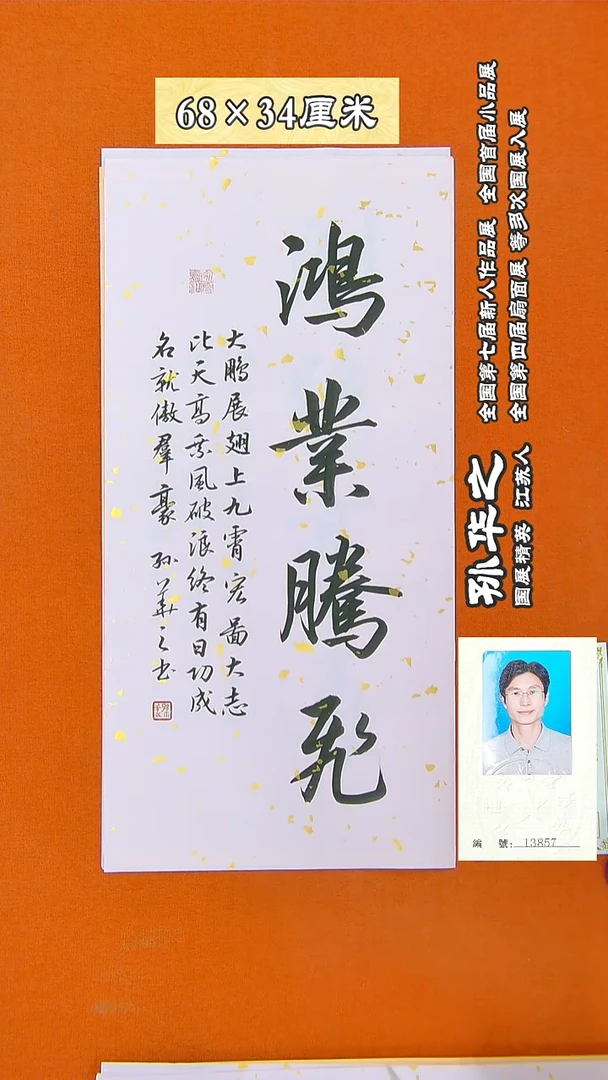 68×34厘米
鸿業騰飛
大鹏展翅上九霄宏啚大志
比天高乘风破浪终有日功成
名就傲羣豪 孙華之书
孙华之
国展精英 江苏人
全国第七届新人作品展 全国首届小品展
全国第四届扇面展 等多次国展入展
编 號: 13857